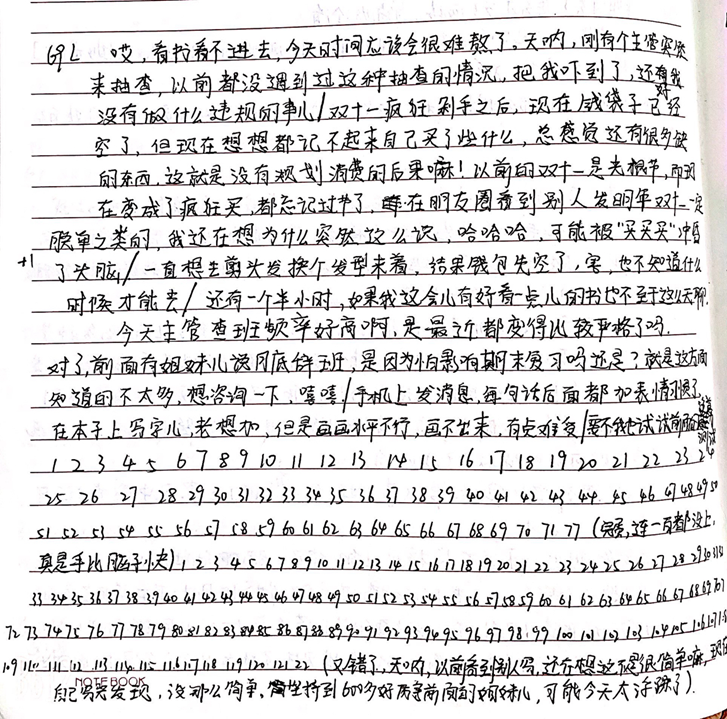 哎，看书看不进去，今天时间应该会很难熬了。天呐，刚有个主管突然
来抽查，以前都没遇到过这种抽查的情况，把我吓到了，还好我
没有做什么违规的事儿/双十一疯狂剁手之后，现在钱袋子已经
空了，但现在想想都记不起来自己买了些什么，总感觉还有很多缺
的东西，这就是没有规划消费的后果嘛！以前的双十一是光棍节，而现
在变成了疯狂买，都忘记过节了，在朋友圈看到别人发明年双十一定
脱单之类的，我还在想为什么突然这么说，哈哈哈，可能被"买买买"冲昏
+1
了头脑/一直想去剪头发换个发型来着，结果钱包先空了，害，也不知道什么
时候才能去/还有一个半小时，如果我这会儿有好看一点儿的书也不至于这么无聊。
今天主管查班频率好高啊，是最近都变得比较严格了吗。
对了，前面有姐妹儿说月底停班，是因为怕影响期末复习吗还是？就是这方面
知道的不太多，想咨询一下 嘻嘻/手机上发消息，每句话后面都加表情习惯了，
在本子上写字儿，老想加，但是画画水平不行，画不出来，有点难受/要不我也试试前面的
1 2 3 4 5 6 7 8 9 10 11 12 13 14 15 16 17 18 19 20 21 22 23 24
25 26 27 28 29 30 31 32 33 34 35 36 37 38 39 40 41 42 43 44 45 46 47 48 49 50
51 52 53 54 55 56 57 58 59 60 61 62 63 64 65 66 67 68 69 70 71 77 (完蛋，连一百都没上，
真是手比脑子快) 1 2 3 4 5 6 7 8 9 10 11 12 13 14 15 16 17 18 19 20 21 22 23 24 25 26 27 28 29 30 31 32
33 34 35 36 37 38 39 40 41 42 43 44 45 46 47 48 49 50 51 52 53 54 55 56 57 58 59 60 61 62 63 64 65 66 67 68 69 70 71
72 73 74 75 76 77 78 79 80 81 82 83 84 85 86 87 88 89 90 91 92 93 94 95 96 97 98 99 100 101 102 103 104 105 106 107 108
109 110 111 112 113 114 115 116 117 118 119 120 121 22 (又错了，天呐，以前看到别人写，还在想这不是很简单嘛，现在
自己写才发现，没那么简单，坚持到600多好厉害前面的姐妹儿，可能今天太浮躁了).
NOTEBOOK